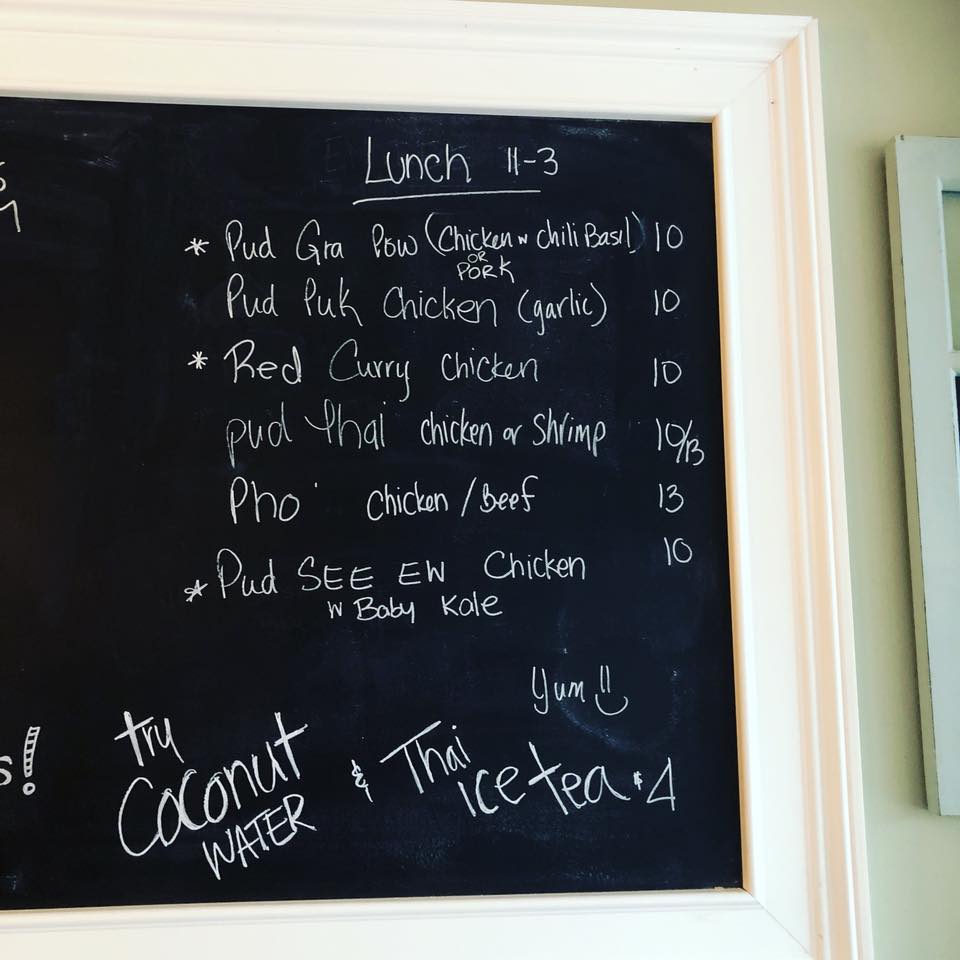 Lunch 11-3
* Pud Gra Pow (Chicken w chili Basil) 10
OR
PORK
Pud Puk Chicken (garlic) 10
* Red Curry Chicken 10
pud thai chicken or Shrimp 10/13
Pho chicken / Beef 13
* Pud SEE EW Chicken 10
w Baby Kale
Yum
try
Coconut & Thai
WATER ice tea $4